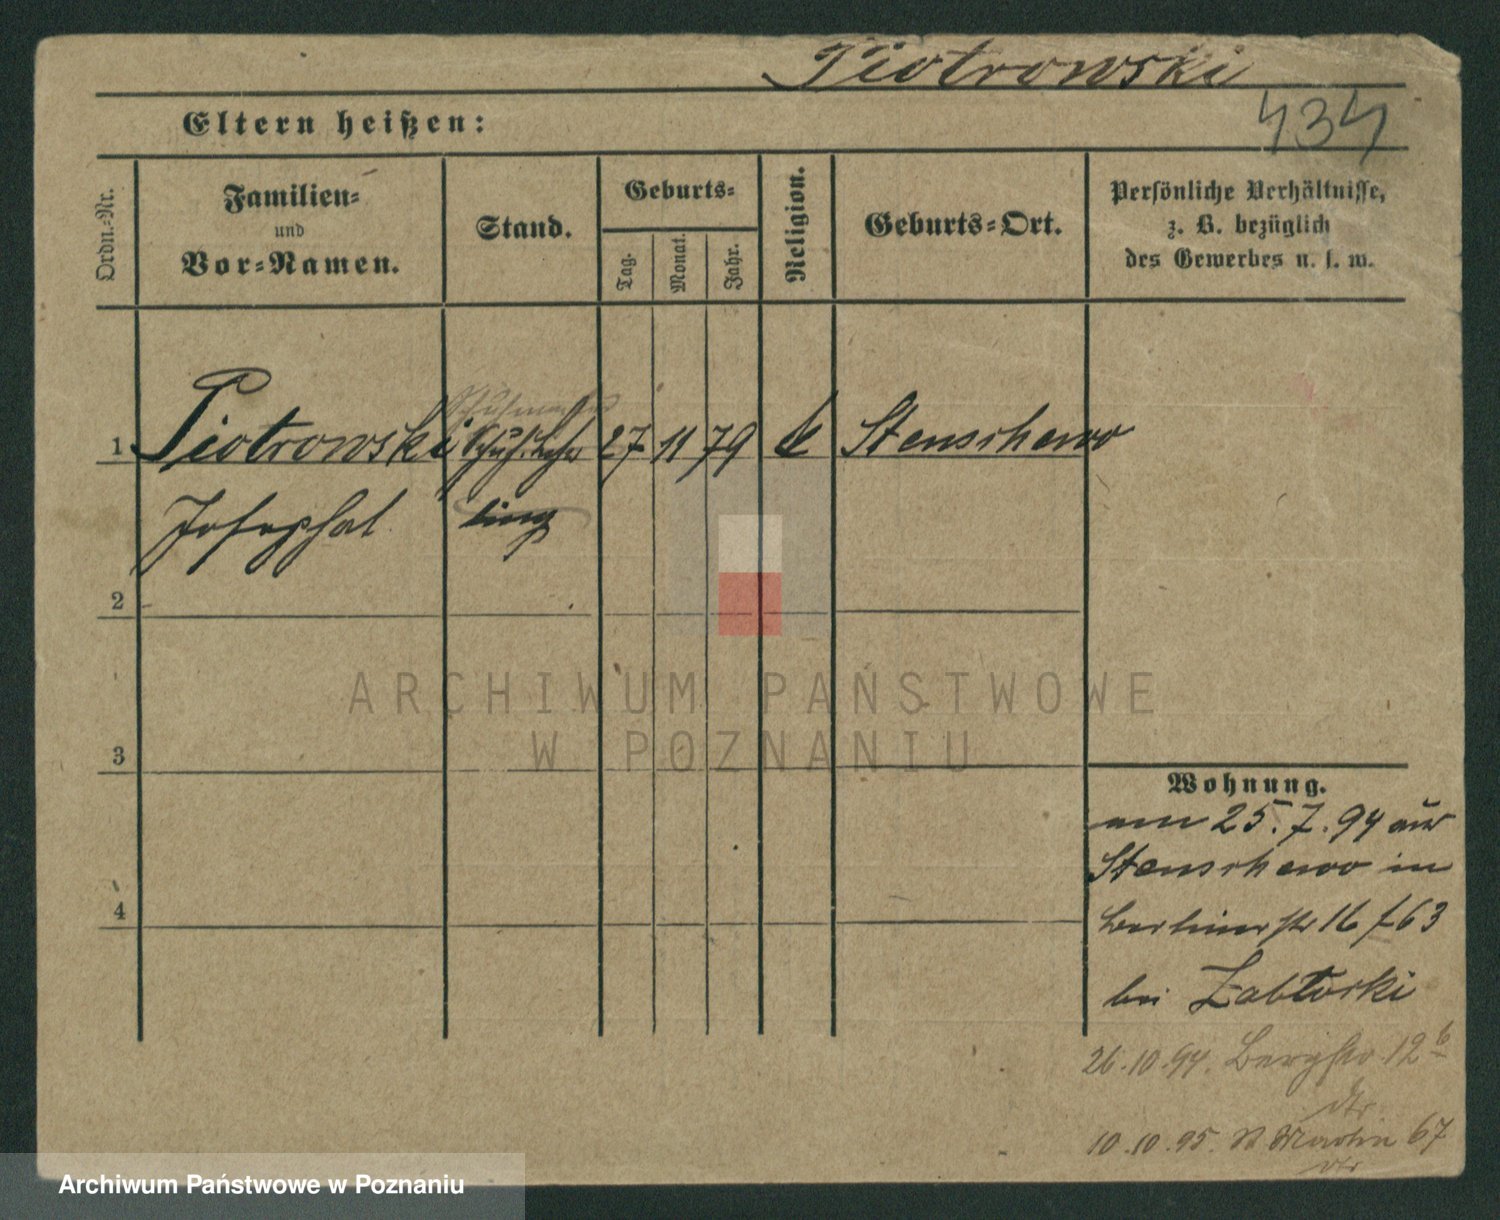 Piotrowski
434
Eltern heißen:
Ordn.-Nr.
Familien-
und
Vor-Namen.
Stand.
Geburts-
Tag.
Monat.
Jahr.
Religion.
Geburts-Ort.
Persönliche Verhältnisse,
z. B. bezüglich
des Gewerbes u. s. w.
1 Piotrowski 27 11 79 k Stenschewo
Josephat
ling
2
3
4
ARCHIWUM PAŃSTWOWE
W POZNANIU
Wohnung.
am 25.7.94 aus
Stenschewo in
Berlinerstr 16 f 63
bei Zabłocki
26.10.94. Bergstr. 12 b
dto
10.10.95. St Martin 67
dto
Archiwum Państwowe w Poznaniu